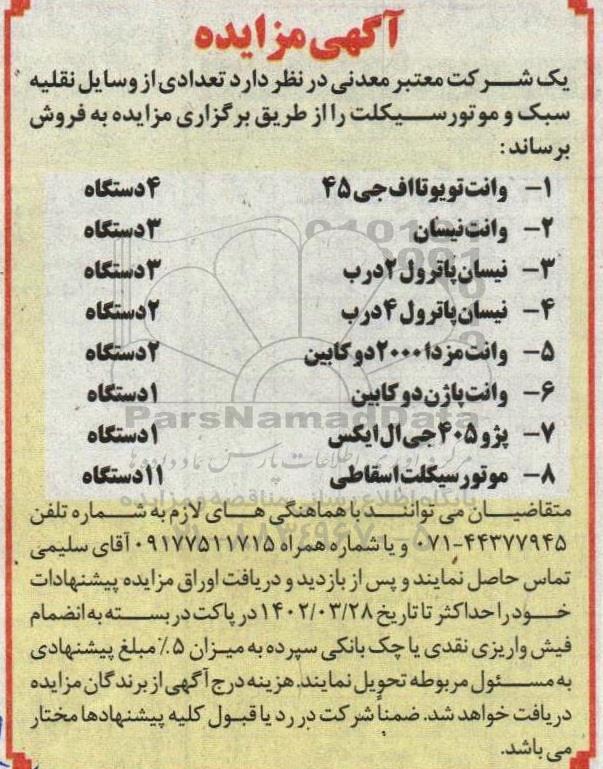 آگهی مزایده
یک شرکت معتبر معدنی در نظر دارد تعدادی از وسایل نقلیه
سبک و موتورسیکلت را از طریق برگزاری مزایده به فروش
برساند:
۱- وانت تویوتا اف جی ۴۵ ۴ دستگاه
۲- وانت نیسان ۳ دستگاه
۳- نیسان پاترول ۲ درب ۳ دستگاه
۴- نیسان پاترول ۴ درب ۲ دستگاه
۵- وانت مزدا ۲۰۰۰ دو کابین ۲ دستگاه
۶- وانت باژن دو کابین ۱ دستگاه
ParsNamadData
۷- پژو ۴۰۵ جی ال ایکس ۱ دستگاه
۸- موتور سیگلت اسقاطی ۱۱ دستگاه
پایگاه اطلاع رسانی مناقصه و مزایده
متقاضیان می توانند با هماهنگی های لازم به شماره تلفن
۰۷۱-۴۴۳۷۷۹۴۵ و یا شماره همراه ۰۹۱۷۷۵۱۱۷۱۵ آقای سلیمی
تماس حاصل نمایند و پس از بازدید و دریافت اوراق مزایده پیشنهادات
خود را حداکثر تا تاریخ ۱۴۰۲/۰۳/۲۸ در پاکت در بسته به انضمام
فیش واریزی نقدی یا چک بانکی سپرده به میزان ۵٪ مبلغ پیشنهادی
به مسئول مربوطه تحویل نمایند. هزینه درج آگهی از برندگان مزایده
دریافت خواهد شد. ضمناً شرکت در رد یا قبول کلیه پیشنهادها مختار
می باشد.